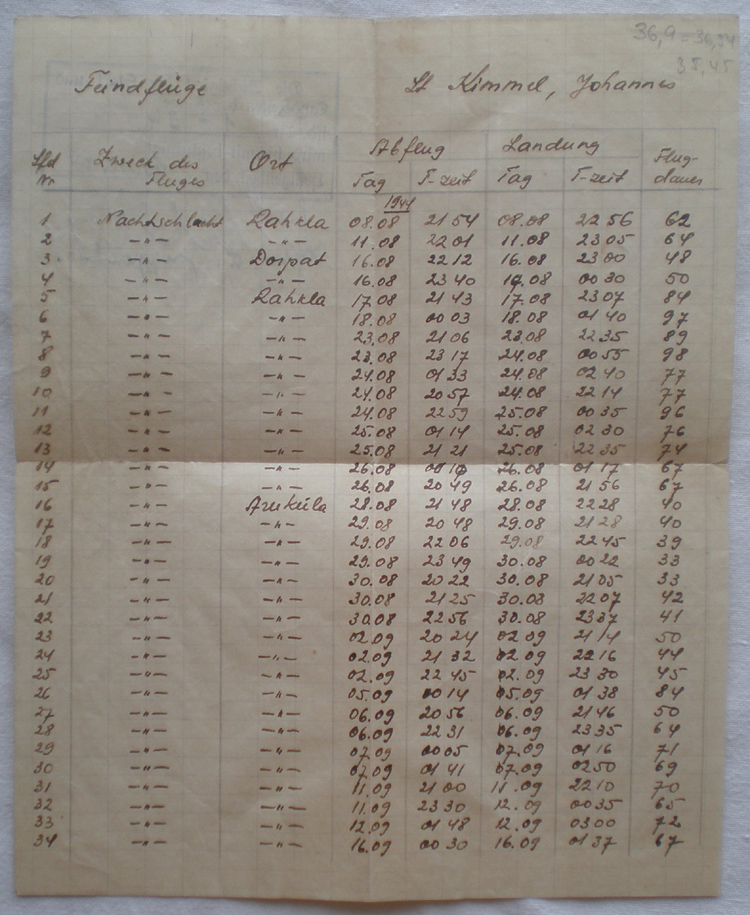 36,9 = 36,54
35,45
Feindflüge Lt Kimmel, Johannes
Lfd Nr Zweck des Fluges Ort Abflug Landung Flug-dauer
Tag T-zeit Tag T-zeit
1944
1 Nachtschlacht Rahkla 08.08 21 54 08.08 22 56 62
2 -"- -"- 11.08 22 01 11.08 23 05 64
3. -"- Dorpat 16.08 22 12 16.08 23 00 48
4 -"- -"- 16.08 23 40 17.08 00 30 50
5 -"- Rahkla 17.08 21 43 17.08 23 07 84
6 -"- -"- 18.08 00 03 18.08 01 40 97
7 -"- -"- 23.08 21 06 23.08 22 35 89
8 -"- -"- 23.08 23 17 24.08 00 55 98
9 -"- -"- 24.08 01 33 24.08 02 40 77
10 -"- -"- 24.08 20 57 24.08 22 14 77
11 -"- -"- 24.08 22 59 25.08 00 35 96
12 -"- -"- 25.08 01 14 25.08 02 30 76
13 -"- -"- 25.08 21 21 25.08 22 35 74
14 -"- -"- 26.08 00 10 26.08 01 17 67
15 -"- -"- 26.08 20 49 26.08 21 56 67
16 -"- Aruküla 28.08 21 48 28.08 22 28 40
17 -"- -"- 29.08 20 48 29.08 21 28 40
18 -"- -"- 29.08 22 06 29.08 22 45 39
19 -"- -"- 29.08 23 49 30.08 00 22 33
20 -"- -"- 30.08 20 22 30.08 21 05 33
21 -"- -"- 30.08 21 25 30.08 22 07 42
22 -"- -"- 30.08 22 56 30.08 23 37 41
23 -"- -"- 02.09 20 24 02.09 21 14 50
24 -"- -"- 02.09 21 32 02.09 22 16 44
25 -"- -"- 02.09 22 45 02.09 23 30 45
26 -"- -"- 05.09 00 14 05.09 01 38 84
27 -"- -"- 06.09 20 56 06.09 21 46 50
28 -"- -"- 06.09 22 31 06.09 23 35 64
29 -"- -"- 07.09 00 05 07.09 01 16 71
30 -"- -"- 07.09 01 41 07.09 02 50 69
31 -"- -"- 11.09 21 00 11.09 22 10 70
32 -"- -"- 11.09 23 30 12.09 00 35 65
33 -"- -"- 12.09 01 48 12.09 03 00 72
34 -"- -"- 16.09 00 30 16.09 01 37 67